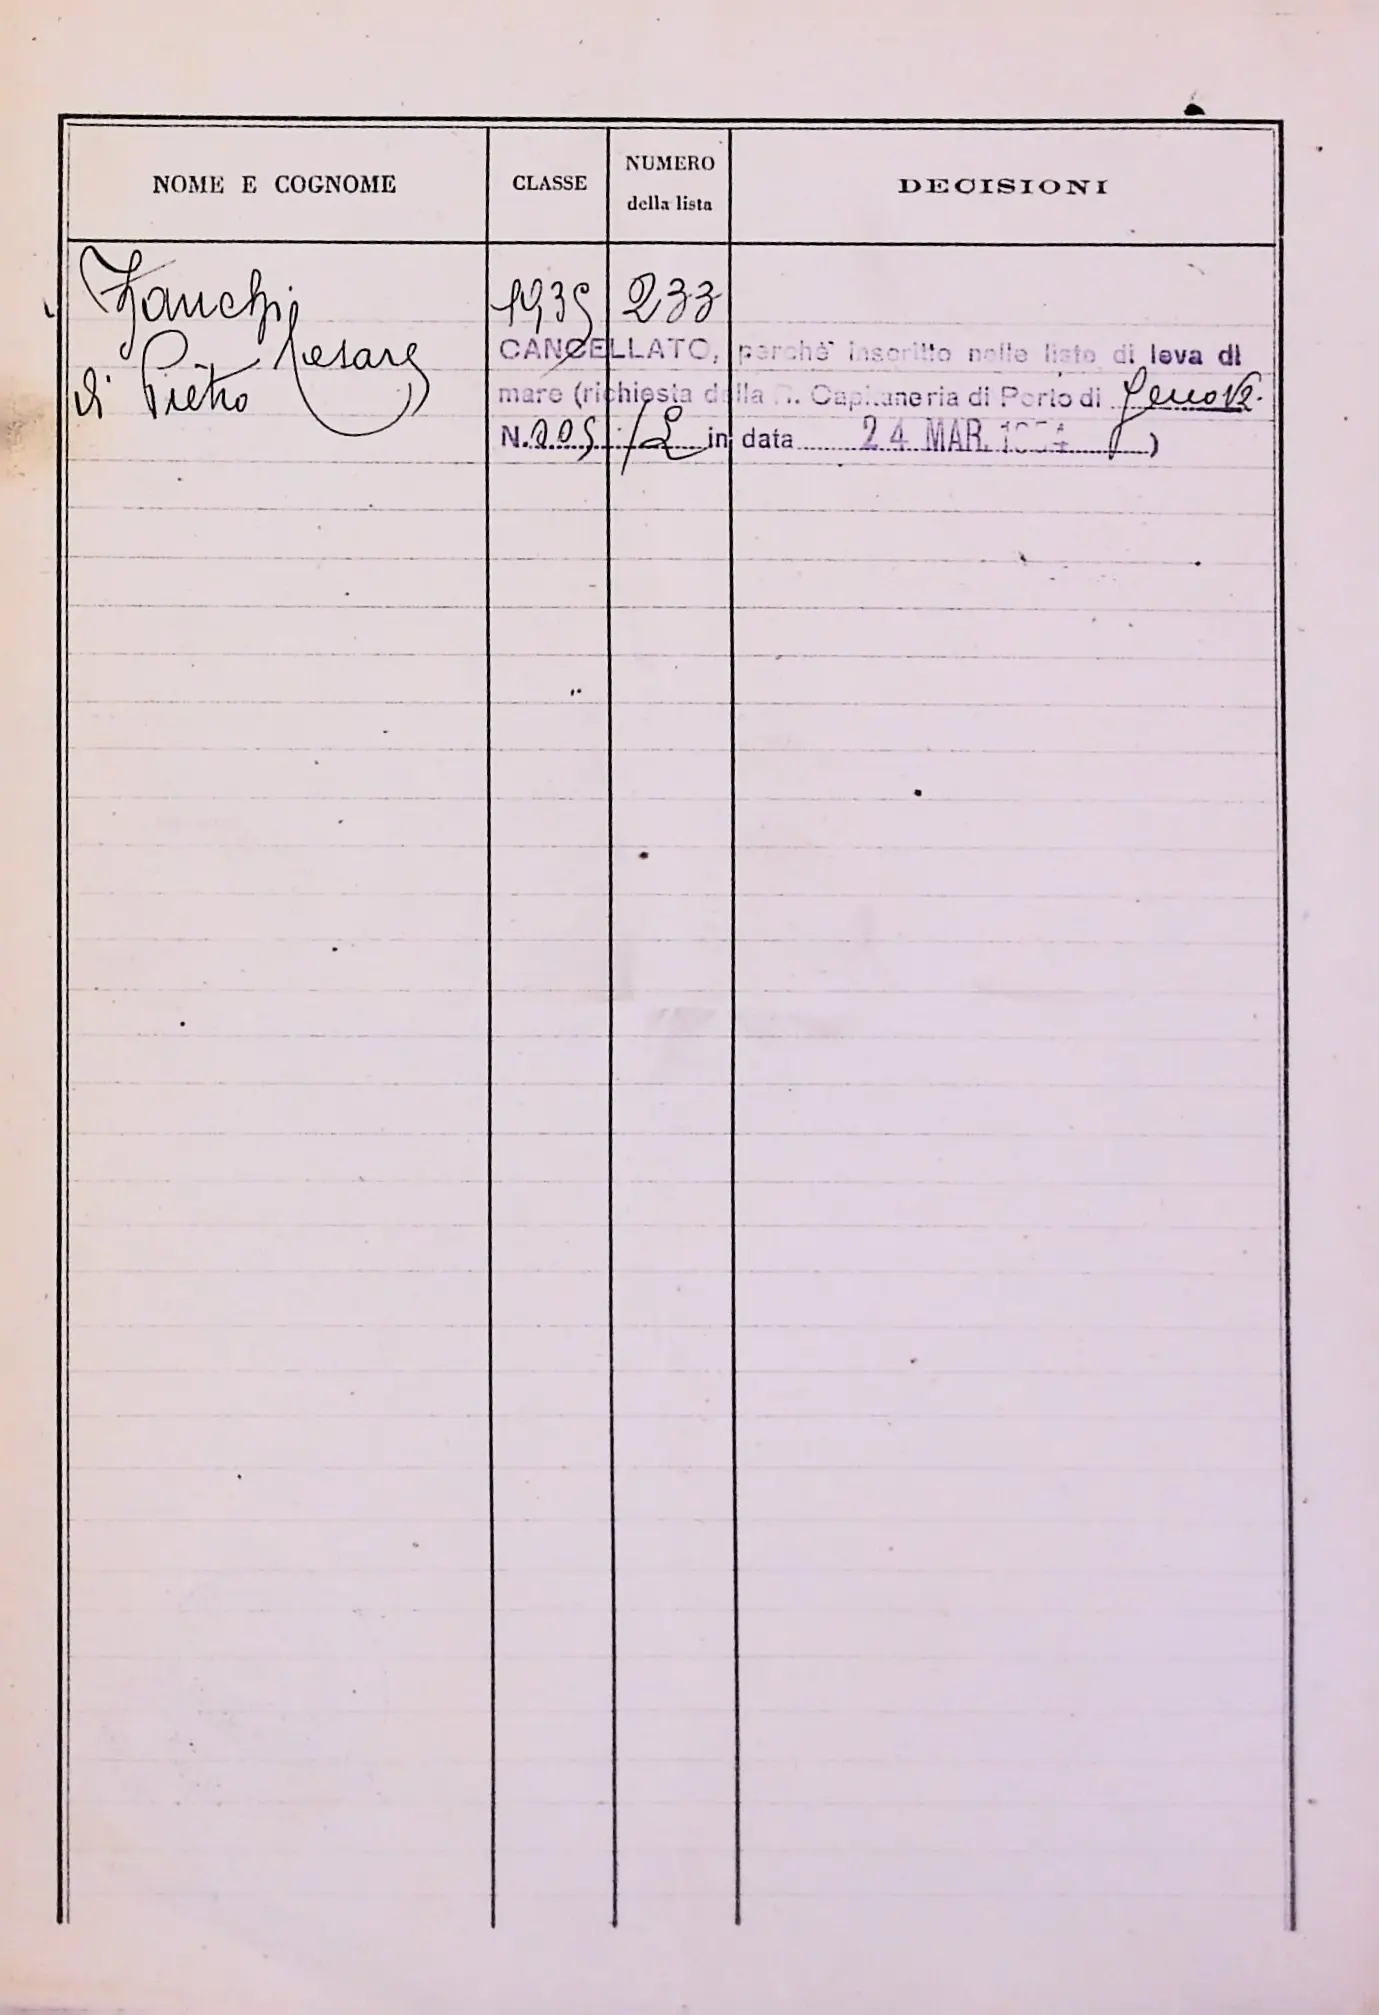 NOME E COGNOME CLASSE NUMERO della lista DECISIONI
Zanchi Cesare 1935 233
di Pietro
CANCELLATO, perchè inscritto nelle liste di leva di
mare (richiesta della R. Capitaneria di Porto di Genova.
N. 205/2 in data 24 MAR. 1954)